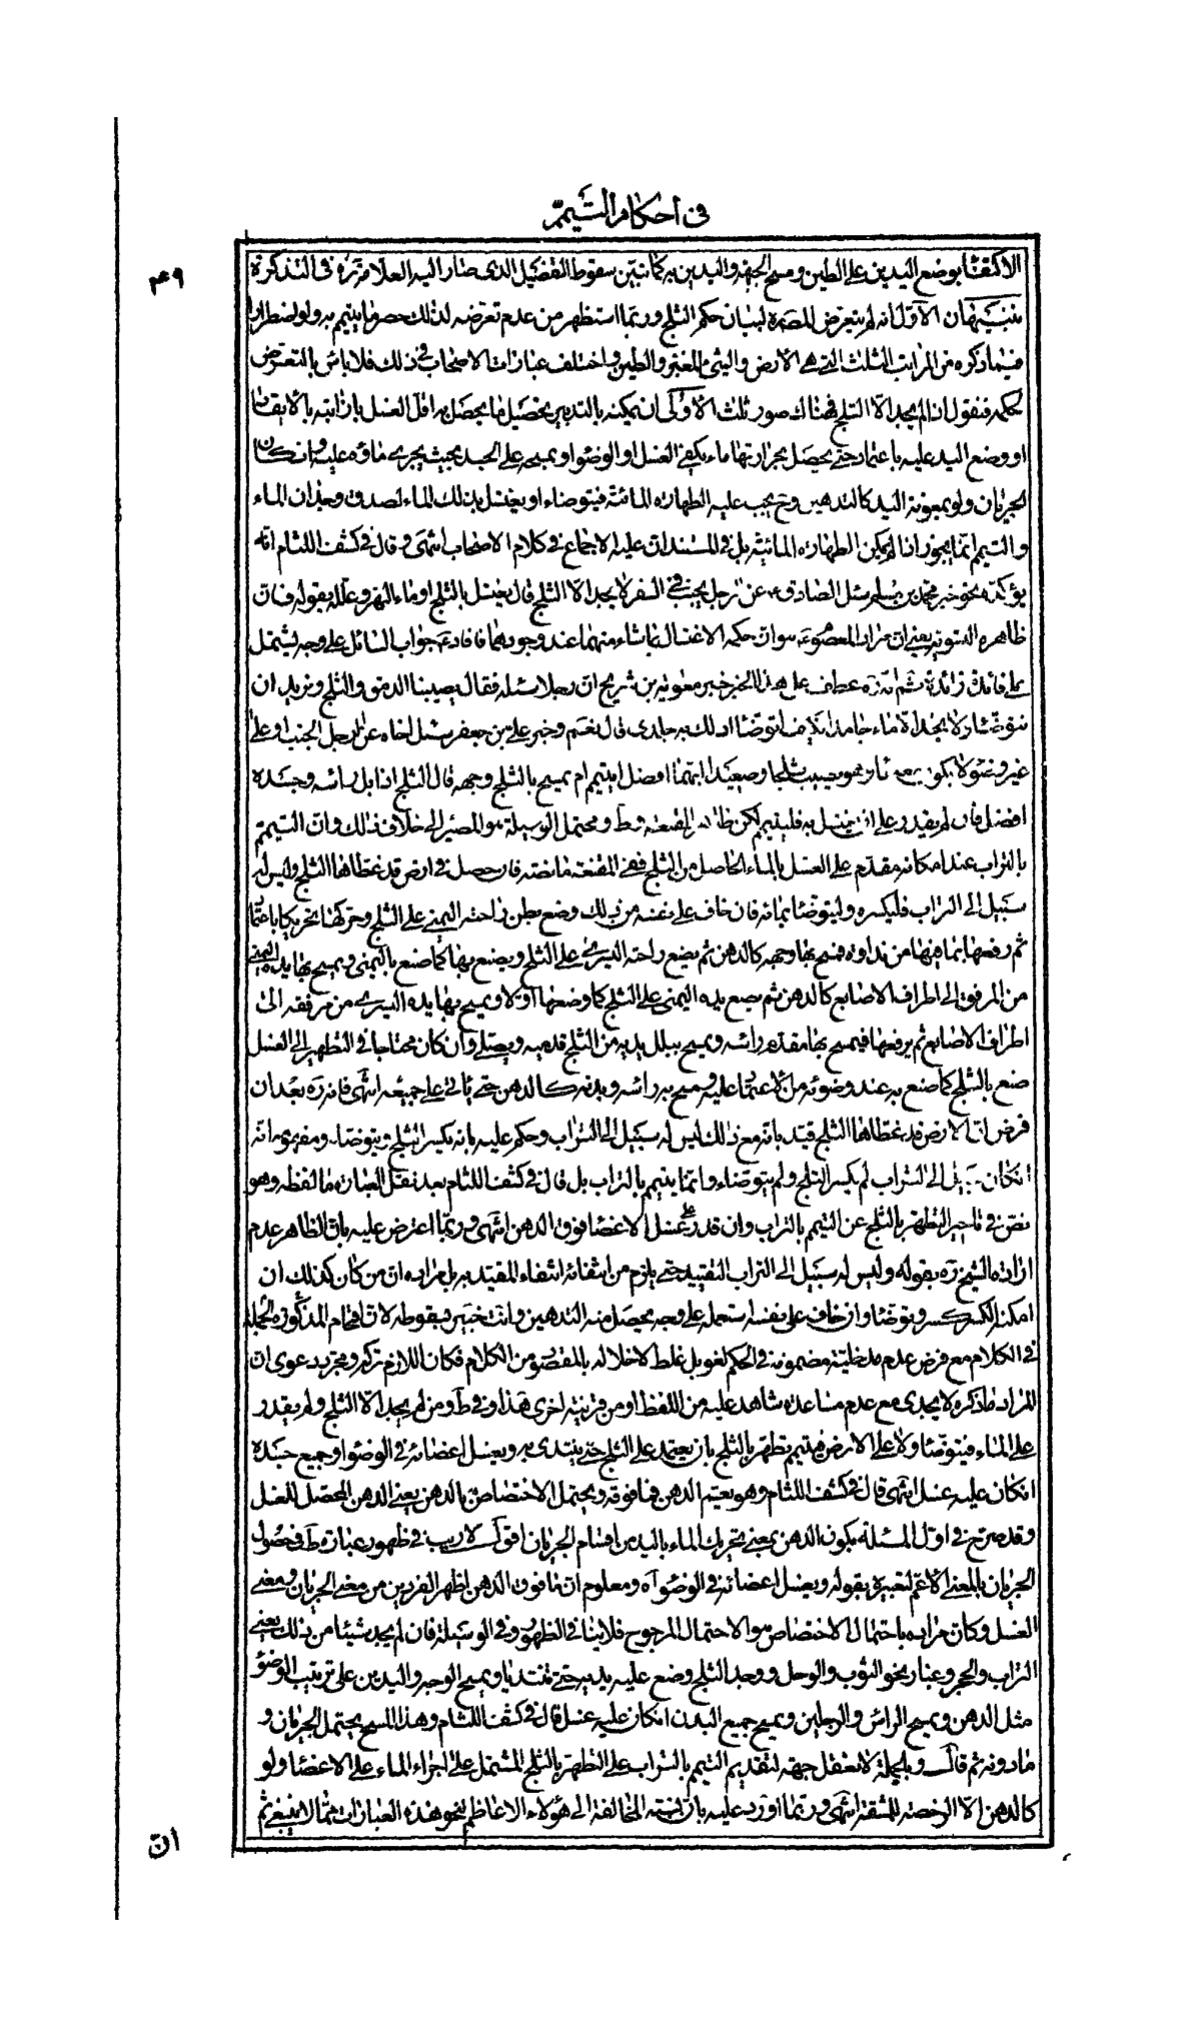 في احكام التيمم
٤٩
الاكتفاء بوضع اليدين على الطين ومسح الجبهة واليدين به كما تبين سقوط التفصيل الذي صار اليه العلامة ره في التذكرة
تنبيهان الاول انه لم يتعرض المصره لبيان حكم الثلج وربما استظهر من عدم تعرضه لذلك حصر ما يتيمم به ولو اضطرارا
فيما ذكره من المراتب الثلث التي هي الارض والشيء المغبر والطين واختلف عبارات الاصحاب في ذلك فلا باس بالتعرض
لحكمه فنقول ان لم يجد الا الثلج فهناك صور ثلث الاولى ان يمكنه بالتدبير تحصيل ما يحصل به اقل الغسل باذابته بالايقاد
او وضع اليد عليه باعتماد حتى يحصل بحرارتها ماء يكفي الغسل او الوضوء او يمسحه على الجسد بحيث يجري ماؤه عليه وان كان
الجريان ولو بمعونة اليد كالتدهين وح يجب عليه الطهارة المائية فيتوضاء او يغتسل بذلك الماء لصدق وجدان الماء
والتيمم انما يجوز اذا لم يمكن الطهارة المائية بل في المستند ان عليه الاجماع في كلام الاصحاب انتهى وقال في كشف اللثام انه
يؤكده نحو خبر محمد بن مسلم سئل الصادق ع عن رجل يجنب في السفر لا يجد الا الثلج قال يغتسل بالثلج او ماء النهر وعلله بقوله فان
ظاهره التسوية يعني ان مراد المعصوم ع هو ان حكمه الاغتسال بما شاء منهما عند وجودهما فافاد ع جواب السائل على وجه يشتمل
على فائدة زائدة ثم انه ره عطف على هذا الخبر خبر معوية بن شريح ان رجلا سئله فقال يصيبنا الدمق والثلج ونريد ان
نتوضا ولا نجد الا ماء جامدا فكيف اتوضا ادلك به جلدي قال نعم وخبر علي بن جعفر سئل اخاه عن الرجل الجنب او على
غير وضوء لا يكون معه ماء وهو يصيب ثلجا وصعيدا ايهما افضل ايتيمم ام يمسح بالثلج وجهه قال الثلج اذا بل راسه وجسده
افضل فان لم يقدر على ان يغتسل به فليتيمم لكن ظاهر المقنعة وط ومحتمل الوسيلة هو المصير الى خلاف ذلك وان التيمم
بالتراب عند امكانه مقدم على الغسل بالماء الحاصل من الثلج ففي المقنعة ما نصه فان حصل في ارض قد غطاها الثلج وليس له
سبيل الى التراب فليكسره وليتوضا بمائه فان خاف على نفسه من ذلك وضع بطن راحته اليمنى على الثلج وحركها تحريكا باعتماد
ثم رفعها بما فيها من نداوة فمسح بها وجهه كالدهن ثم يضع راحته اليسرى على الثلج ويصنع بها كما صنع باليمنى ويمسح بها يده اليمنى
من المرفق الى اطراف الاصابع كالدهن ثم يضع يده اليمنى على الثلج كما وضعها اولا ويمسح بها يده اليسرى من مرفقه الى
اطراف الاصابع ثم يرفعها فيمسح بها مقدم راسه ويمسح ببلل يديه من الثلج قدميه ويصلي وان كان محتاجا في التطهير الى الغسل
صنع بالثلج كما صنع به عند وضوئه من الاعتماد عليه ومسح به راسه وبدنه كالدهن حتى ياتي على جميعه انتهى فانه ره بعد ان
فرض ان الارض قد غطاها الثلج قيد بانه مع ذلك ليس له سبيل الى التراب وحكم عليه بانه يكسر الثلج ويتوضا ومفهومه انه
ان كان سبيل الى التراب لم يكسر الثلج ولم يتوضاء وانما يتيمم بالتراب بل قال في كشف اللثام بعد نقل العبارة ما لفظه وهو
نص في تاخير التطهر بالثلج عن التيمم بالتراب وان قدر على غسل الاعضاء فوق الدهن انتهى وربما اعترض عليه بان الظاهر عدم
ارادة الشيخ ره بقوله وليس له سبيل الى التراب التقييد حتى يلزم من انتفائه انتفاء المقيد به بل مراده ان من كان كذلك ان
امكنه الكسر كسر وتوضا وان خاف على نفسه استعمله على وجه يحصل منه التدهين وانت خبير بسقوطه لان اقحام المذكورة الجملة
في الكلام مع فرض عدم مدخلية مضمونه في الحكم لغو بل غلط لاخلاله بالمقصود من الكلام فكان اللازم تركه ومجرد دعوى ان
المراد ما ذكره لا يجدي مع عدم مساعدة شاهد عليه من اللفظ او من قرينة اخرى هذا وفي ط ومن لم يجد الا الثلج ولم يقدر
على الماء فيتوضا ولا على الارض فيتيمم تطهر بالثلج بان يعتمد على الثلج حتى يبتدي به ويغسل اعضائه في الوضوء او جميع جسده
ان كان عليه غسل انتهى قال في كشف اللثام وهو يعم الدهن فما فوقه ويحتمل الاختصاص بالدهن يعني الدهن المحصل للغسل
وقد صرح في اول المسئلة بكون الدهن بمعنى تحريك الماء باليد من اقسام الجريان اقول لا ريب في ظهور عبارة ط في حصول
الجريان بالمعنى الاعم لتعبيره بقوله ويغسل اعضائه في الوضوء اه ومعلوم ان ما فوق الدهن اظهر الفردين من معنى الجريان ومعنى
الغسل وكان مراده باحتمال الاختصاص هو الاحتمال المرجوح فلا ينافي الظهور وفي الوسيلة فان لم يجد شيئا من ذلك يعني
التراب والحجر وغبار نحو الثوب والوحل ووجد الثلج وضع عليه يديه حتى تتنديا ويمسح الوجه واليدين على ترتيب الوضوء
مثل الدهن ويمسح الراس والرجلين ويمسح جميع البدن ان كان عليه غسل قال في كشف اللثام وهذا المسح يحتمل الجريان و
ما دونه ثم قال وبالجملة لا نعقل جهة لتقديم التيمم بالتراب على التطهر بالثلج المشتمل على اجراء الماء على الاعضاء ولو
كالدهن الا الرخصة للمشقة انتهى وربما اورد عليه بان نسبة المخالفة الى هؤلاء الاعاظم بنحو هذه العبارات مما لا ينبغي ثم
ان